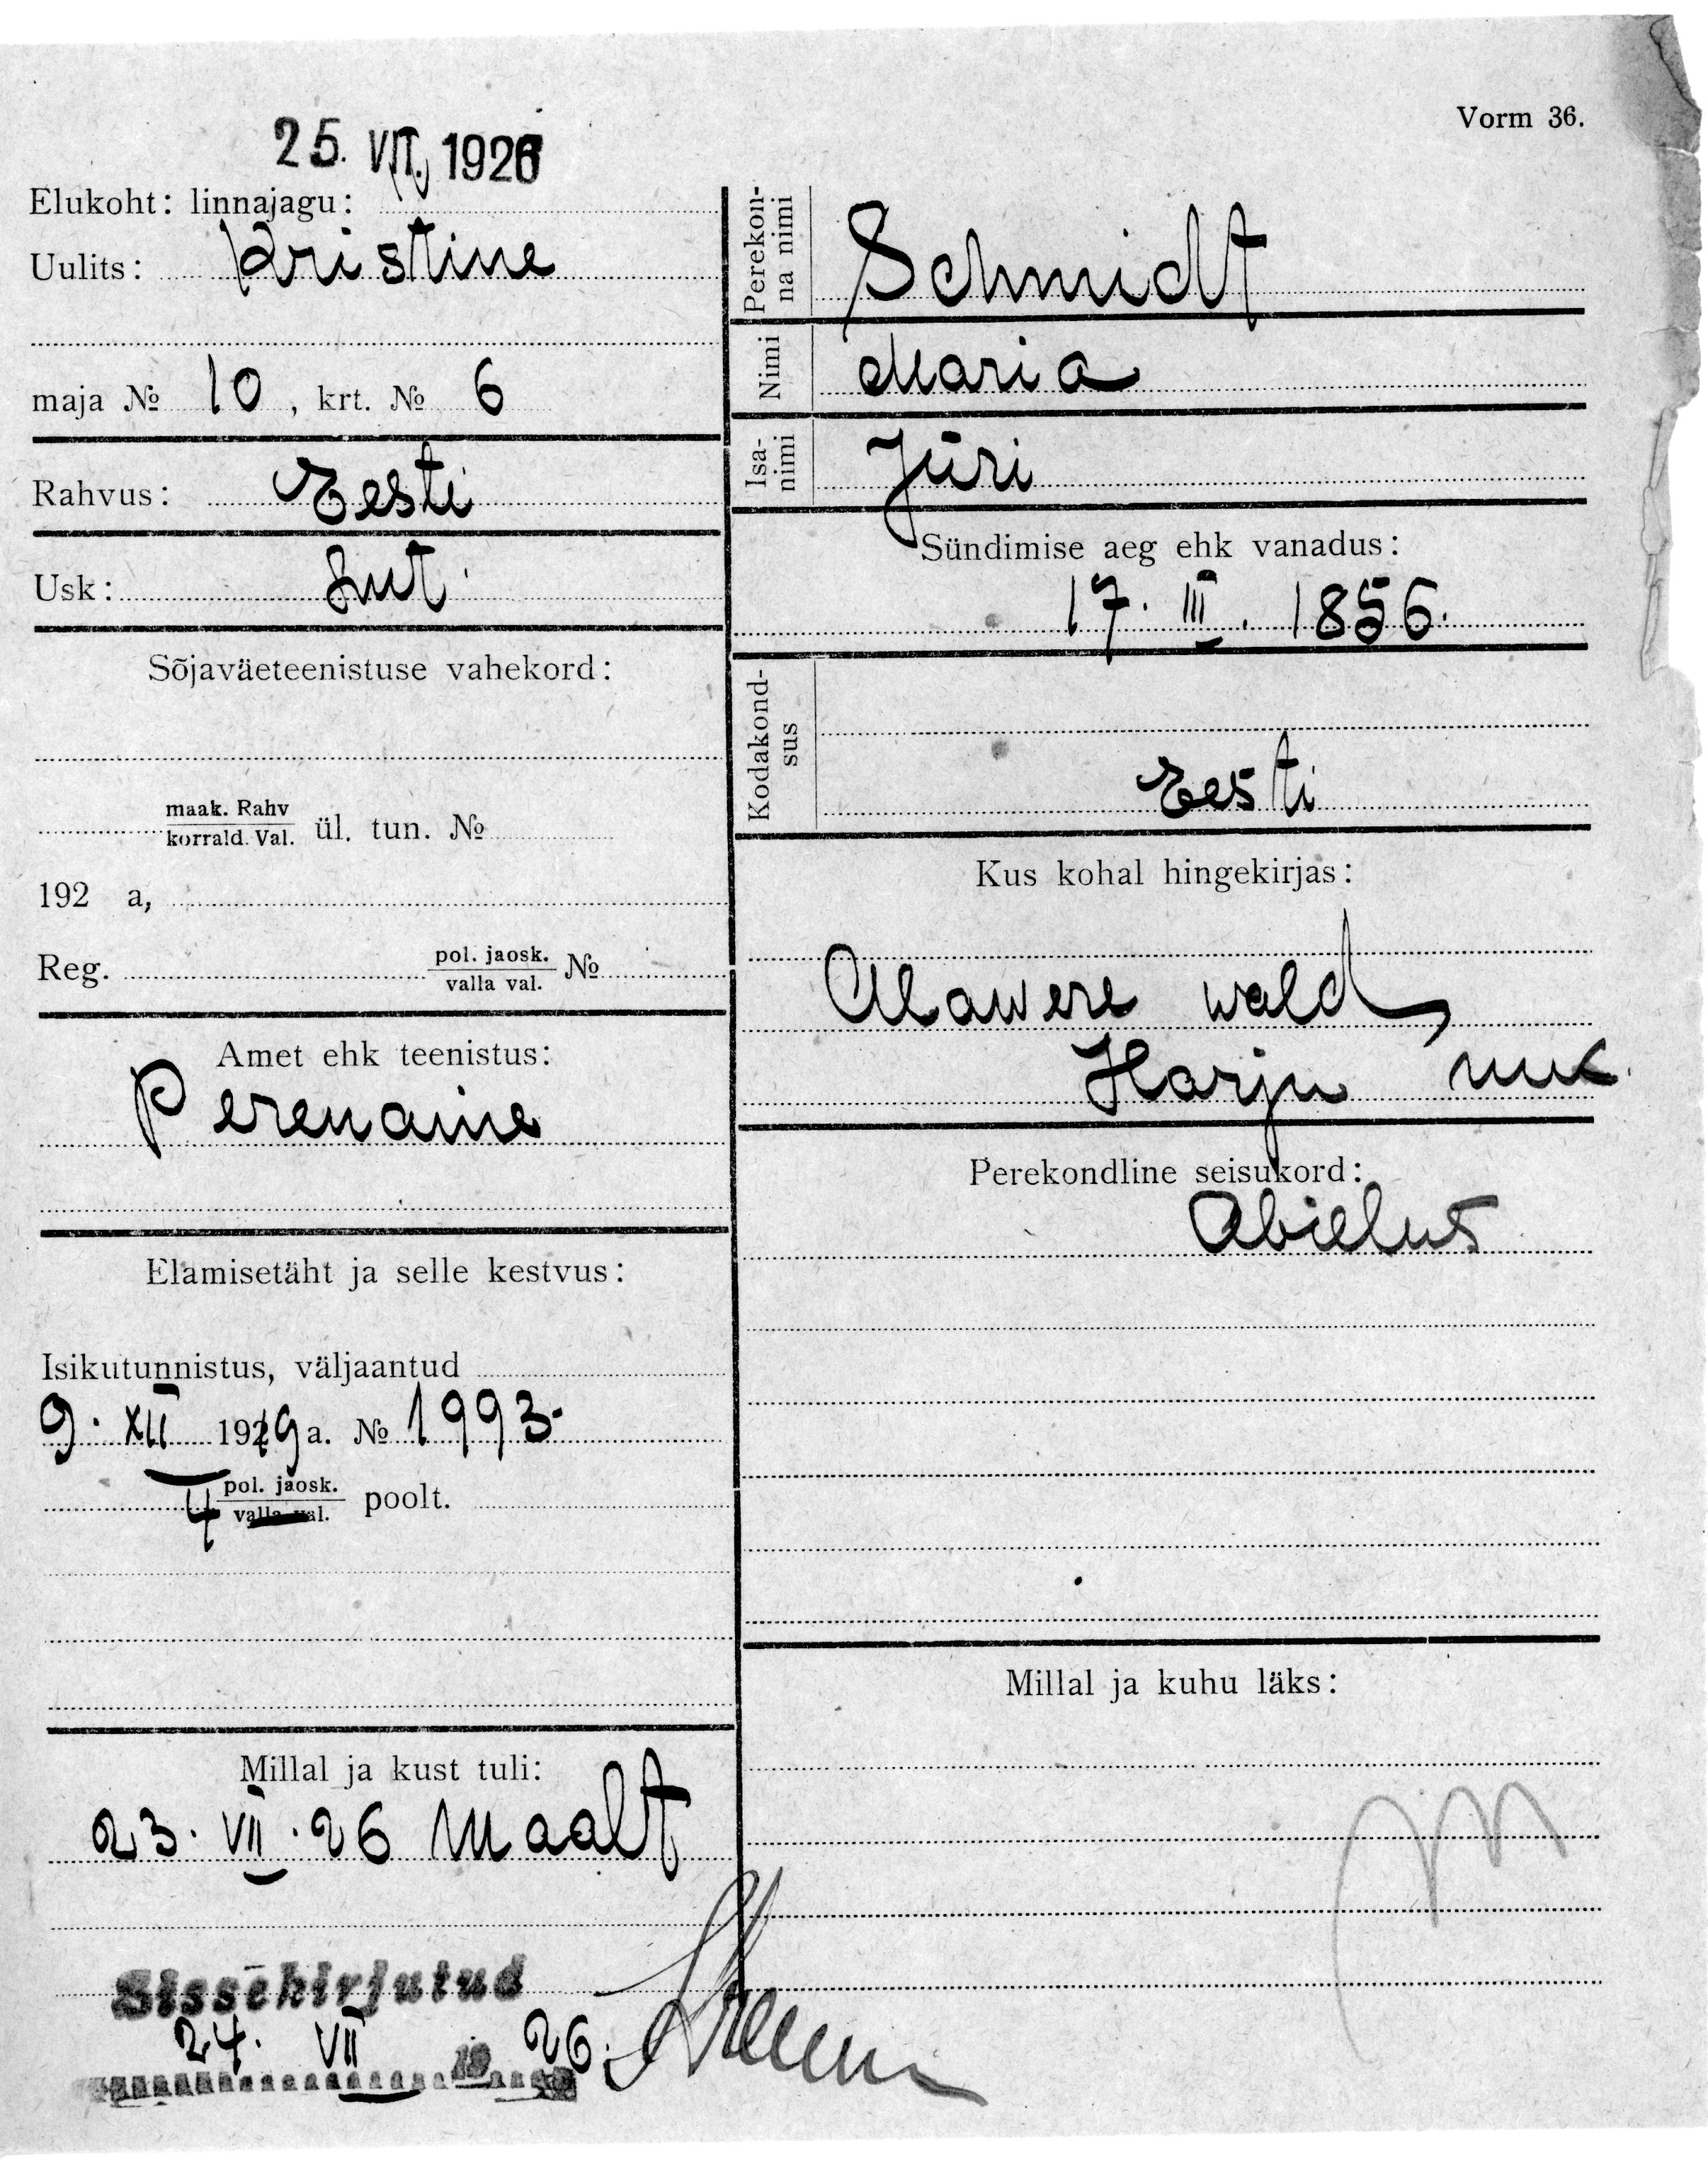 Vorm 36.
25. VII. 1926
Elukoht: linnajagu:
Uulits: Kristine
maja № 10, krt. № 6
Rahvus: Eesti
Usk: Lut.
Sõjaväeteenistuse vahekord:
maak. Rahv
korrald. Val. ül. tun. №
192 a,
Reg. pol. jaosk. №
valla val.
Amet ehk teenistus:
Perenaine
Elamisetäht ja selle kestvus:
Isikutunnistus, väljaantud
9. XII 1919 a. № 1993.
4 pol. jaosk. poolt.
valla val.
Millal ja kust tuli:
23. VII. 26 Maalt
Sissekirjutud
24. VII 19 26.
Perekon-
na nimi Schmidt
Nimi Maria
Isa-
nimi Jüri
Sündimise aeg ehk vanadus:
17. III. 1856.
Kodakond-
sus Eesti
Kus kohal hingekirjas:
Alawere wald
Harju mk.
Perekondline seisukord:
Abielus
Millal ja kuhu läks: